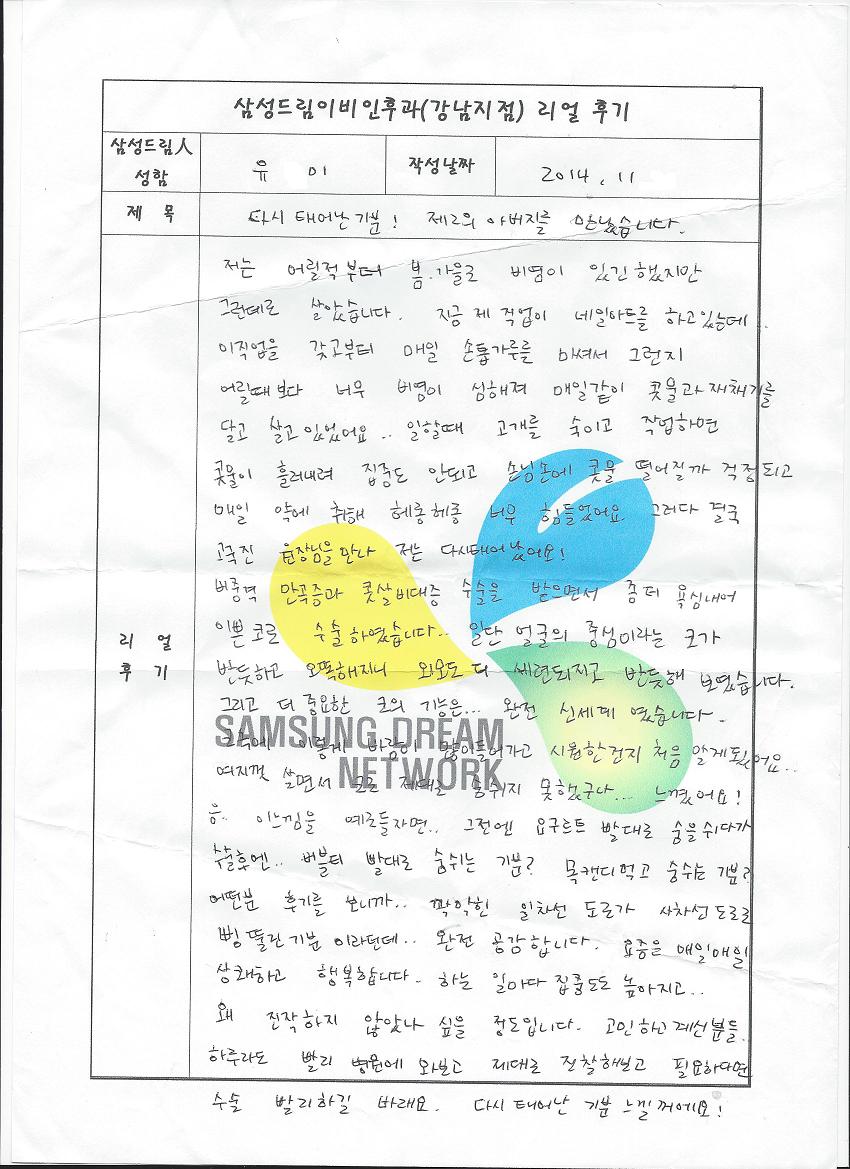 삼성드림이비인후과(강남지점) 리얼 후기
삼성드림人 성함
유 미
작성날짜
2014. 11
제 목
다시 태어난 기분! 제2의 아버지를 만났습니다.
리 얼
후 기
저는 어릴적부터 봄.가을로 비염이 있긴 했지만
그런데로 살았습니다. 지금 제 직업이 네일아트를 하고있는데..
이직업을 갖고부터 매일 손톱가루를 마셔서 그런지
어릴때보다 너무 비염이 심해져 매일같이 콧물과 재채기를
달고 살고있었어요.. 일할때 고개를 숙이고 작업하면
콧물이 흘러내려 집중도 안되고 손님손에 콧물 떨어질까 걱정되고
매일 약에 취해 헤롱헤롱 너무 힘들었어요 그러다 결국
고국진 원장님을 만나 저는 다시태어났어요!
비중격 만곡증과 콧살비대증 수술을 받으면서 좀더 욕심내어
이쁜코로 수술하였습니다.. 일단 얼굴의 중심이라는 코가
반듯하고 오똑해지니 외모도 더 세련되지고 반듯해 보였습니다.
그리고 더 중요한 코의 기능은... 완전 신세계 였습니다.
SAMSUNG DREAM
NETWORK
콧속에 이렇게 바람이 많이들어가고 시원한건지 처음 알게됐어요..
여지껏 살면서 코로 제대로 숨쉬지 못했구나... 느꼈어요!
음.. 이느낌을 예로들자면.. 그전엔 요구르트 빨대로 숨을쉬다가
수술후엔.. 버블티 빨대로 숨쉬는 기분? 목캔디먹고 숨쉬는 기분?
어떤분 후기를 보니까.. 꽉막힌 일차선 도로가 사차선도로로
뻥뚫린기분 이라던데.. 완전 공감합니다. 요즘은 매일매일
상쾌하고 행복합니다. 하는 일마다 집중도도 높아지고..
왜 진작하지 않았나 싶을 정도입니다. 고민하고계신분들.
하루라도 빨리 병원에 와보고 제대로 진찰해보고 필요하다면
수술 빨리하길 바래요. 다시 태어난 기분 느낄꺼에요!